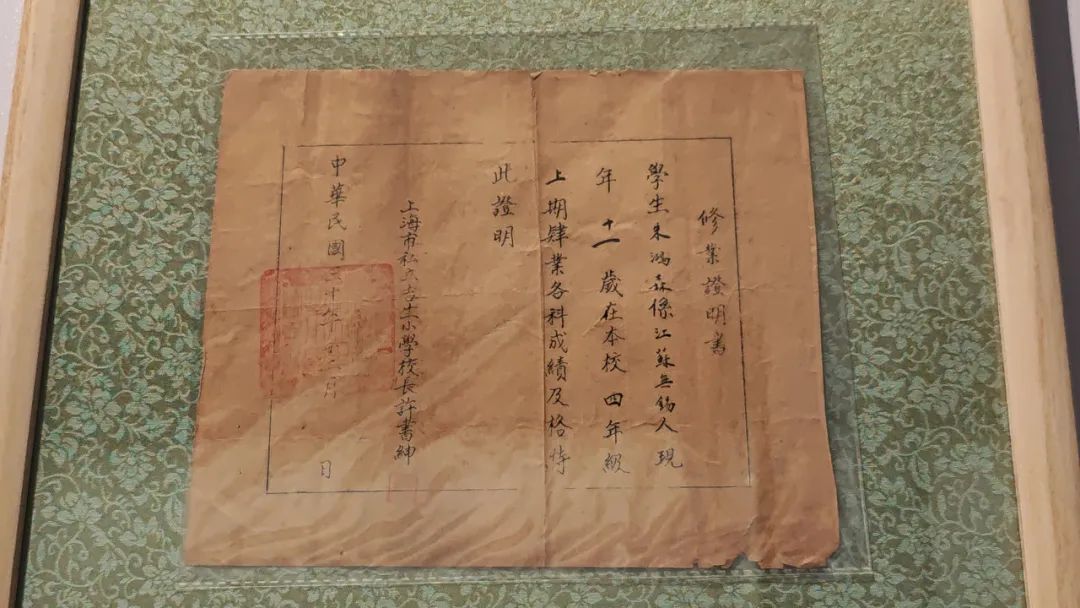 修業證明書
學生朱鴻森係江蘇無錫人現
年十一歲在本校四年級
上期肄業各科成績及格特
此證明
上海市私立吉生小學校長許書紳
中華民國三十年月
日